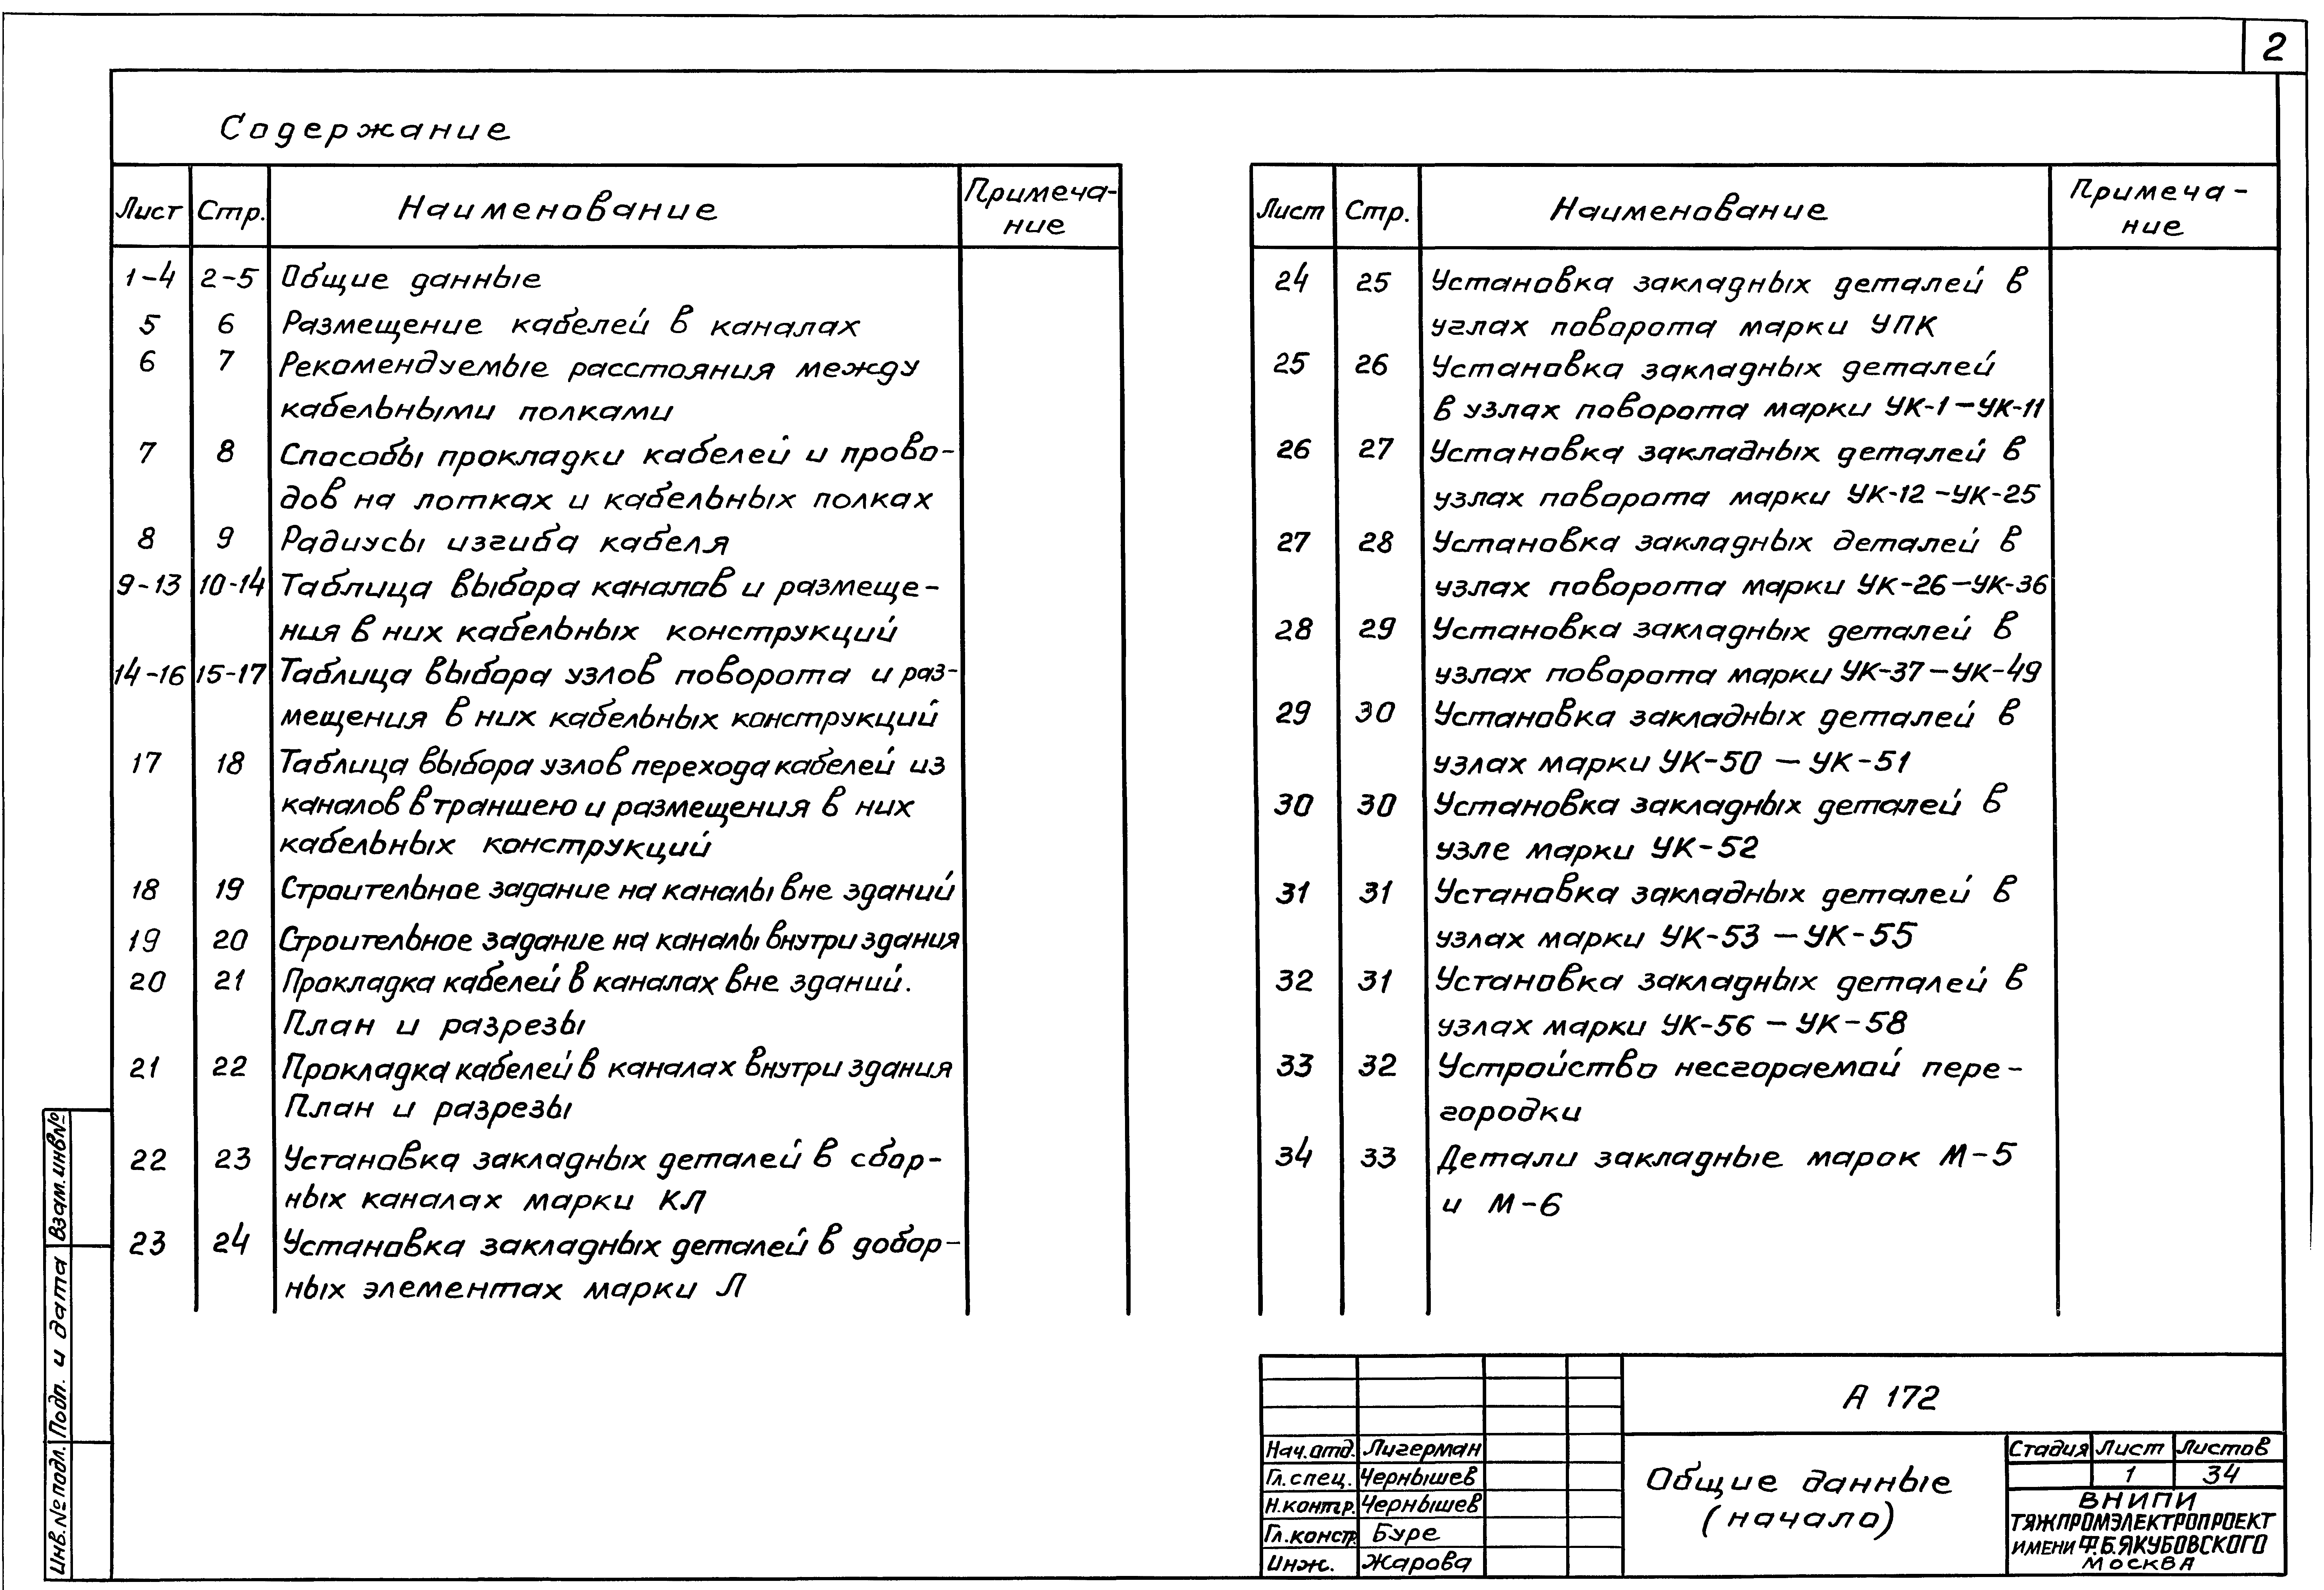 2
Содержание
Лист Стр. Наименование Примеча-
ние
1-4 2-5 Общие данные
5 6 Размещение кабелей в каналах
6 7 Рекомендуемые расстояния между
кабельными полками
7 8 Способы прокладки кабелей и прово-
дов на лотках и кабельных полках
8 9 Радиусы изгиба кабеля
9-13 10-14 Таблица выбора каналов и размеще-
ния в них кабельных конструкций
14-16 15-17 Таблица выбора узлов поворота и раз-
мещения в них кабельных конструкций
17 18 Таблица выбора узлов перехода кабелей из
каналов в траншею и размещения в них
кабельных конструкций
18 19 Строительное задание на каналы вне зданий
19 20 Строительное задание на каналы внутри здания
20 21 Прокладка кабелей в каналах вне зданий.
План и разрезы
21 22 Прокладка кабелей в каналах внутри здания
План и разрезы
22 23 Установка закладных деталей в сбор-
ных каналах марки КЛ
23 24 Установка закладных деталей в добор-
ных элементах марки Л
Лист Стр. Наименование Примеча-
ние
24 25 Установка закладных деталей в
углах поворота марки УПК
25 26 Установка закладных деталей
в узлах поворота марки УК-1-УК-11
26 27 Установка закладных деталей в
узлах поворота марки УК-12-УК-25
27 28 Установка закладных деталей в
узлах поворота марки УК-26-УК-36
28 29 Установка закладных деталей в
узлах поворота марки УК-37-УК-49
29 30 Установка закладных деталей в
узлах марки УК-50 - УК-51
30 30 Установка закладных деталей в
узле марки УК-52
31 31 Установка закладных деталей в
узлах марки УК-53 - УК-55
32 31 Установка закладных деталей в
узлах марки УК-56 - УК-58
33 32 Устройство несгораемой пере-
городки
34 33 Детали закладные марок М-5
и М-6
Инв.№подл. Подп. и дата Взам.инв№
А 172
Нач.отд. Лигерман
Гл.спец. Чернышев
Н.контр. Чернышев
Гл.констр. Буре
Инж. Жарова
Общие данные
(начало)
Стадия Лист Листов
1 34
ВНИПИ
ТЯЖПРОМЭЛЕКТРОПРОЕКТ
ИМЕНИ Ф.Б.ЯКУБОВСКОГО
МОСКВА